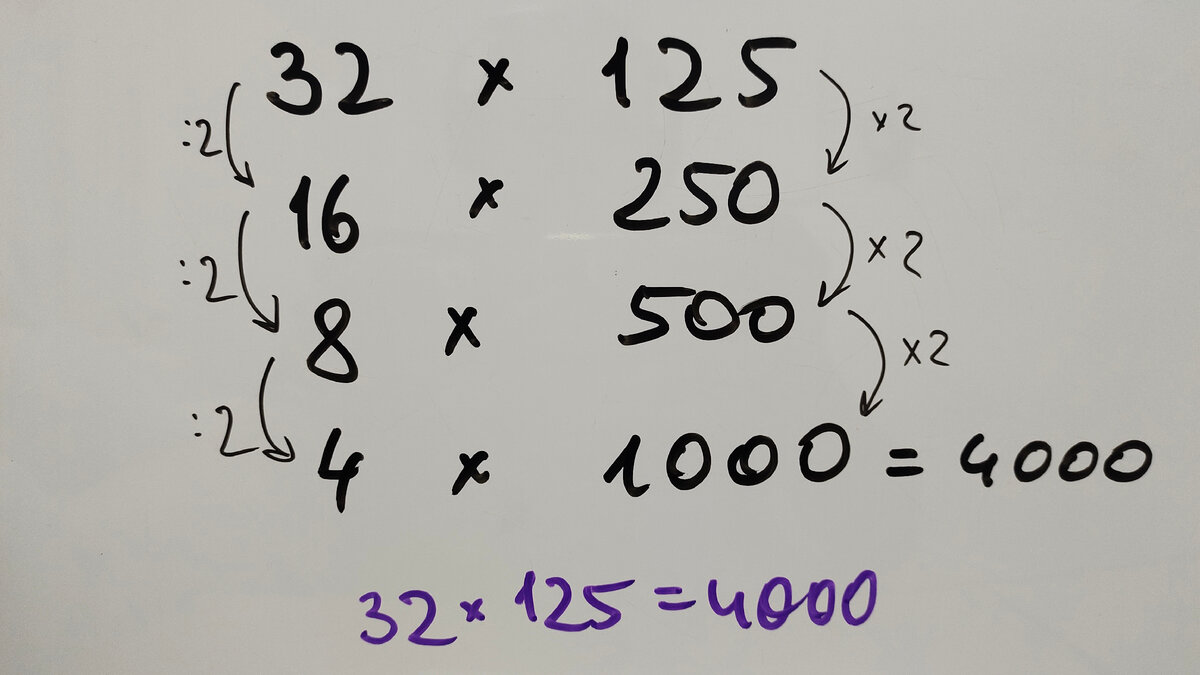 32 x 125
:2 x2
16 x 250
:2 x2
8 x 500
:2 x2
4 x 1000 = 4000
32 x 125 = 4000